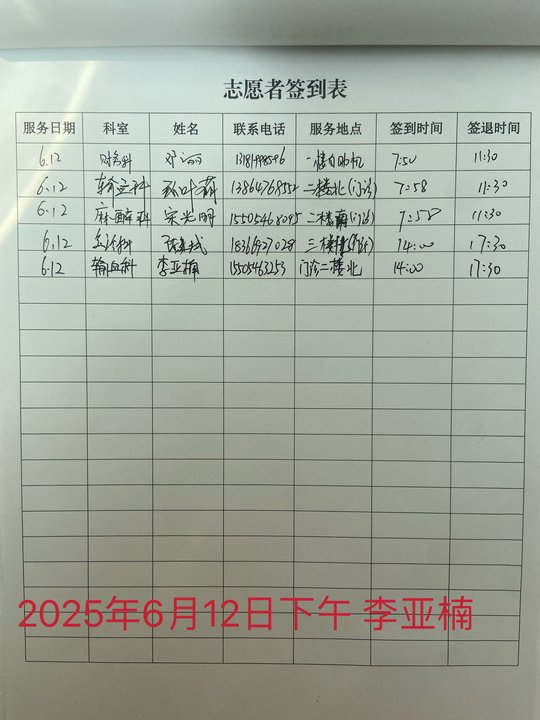 志愿者签到表
服务日期 科室 姓名 联系电话 服务地点 签到时间 签退时间
6.12 财务科 邓 一楼自助机 7:50 11:30
6.12 输血科 孙叶莉 13864768552 二楼北(门诊) 7:58 11:30
6.12 麻醉科 宋光明 15505468095 二楼南(门诊) 7:58 11:30
6.12 18369270291 三楼 14:00 17:30
6.12 输血科 李亚楠 15505463253 门诊二楼北 14:00 17:30
2025年6月12日下午 李亚楠